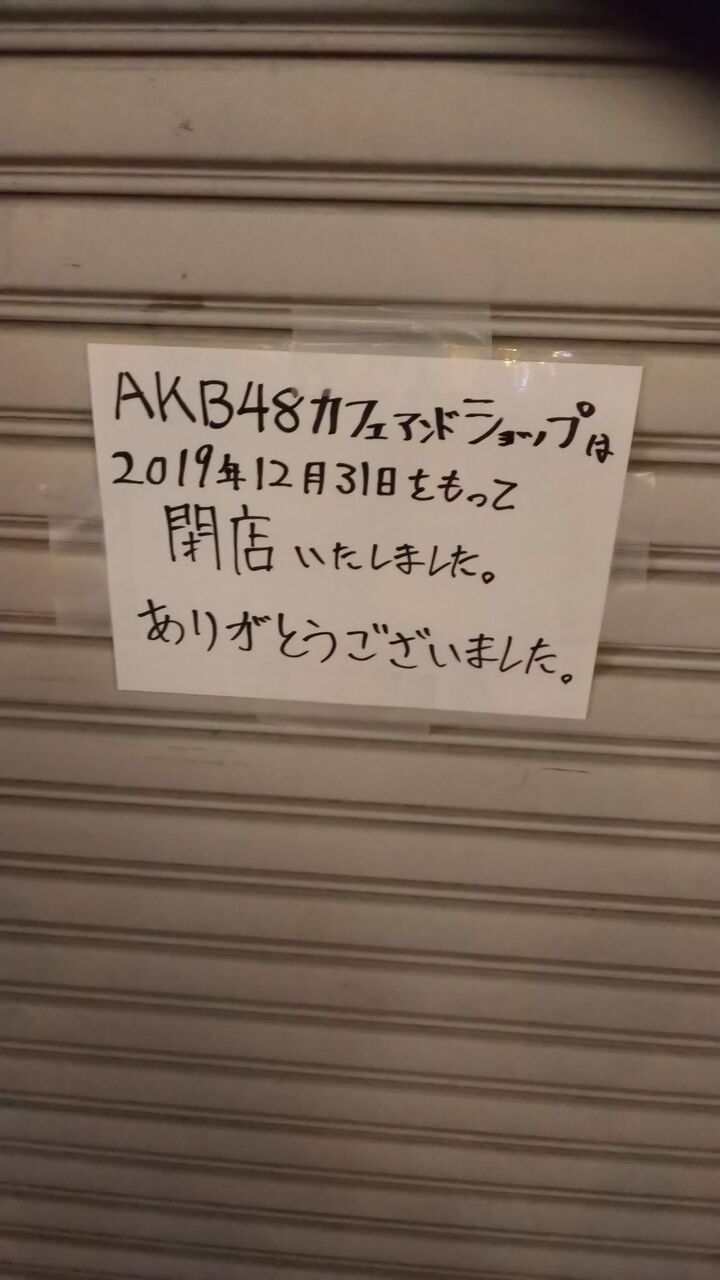 AKB48カフェアンドショップは
2019年12月31日をもって
閉店いたしました。
ありがとうございました。